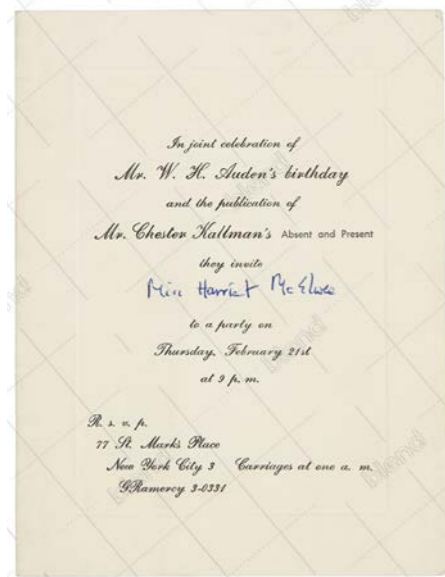 In joint celebration of
Mr. W. H. Auden's birthday
and the publication of
Mr. Chester Kallman's Absent and Present
they invite
Miss Harriet McElwee
to a party on
Thursday, February 21st
at 9 p. m.
R. s. v. p.
77 St. Mark's Place
New York City 3 Carriages at one a. m.
GRamercy 3-0331